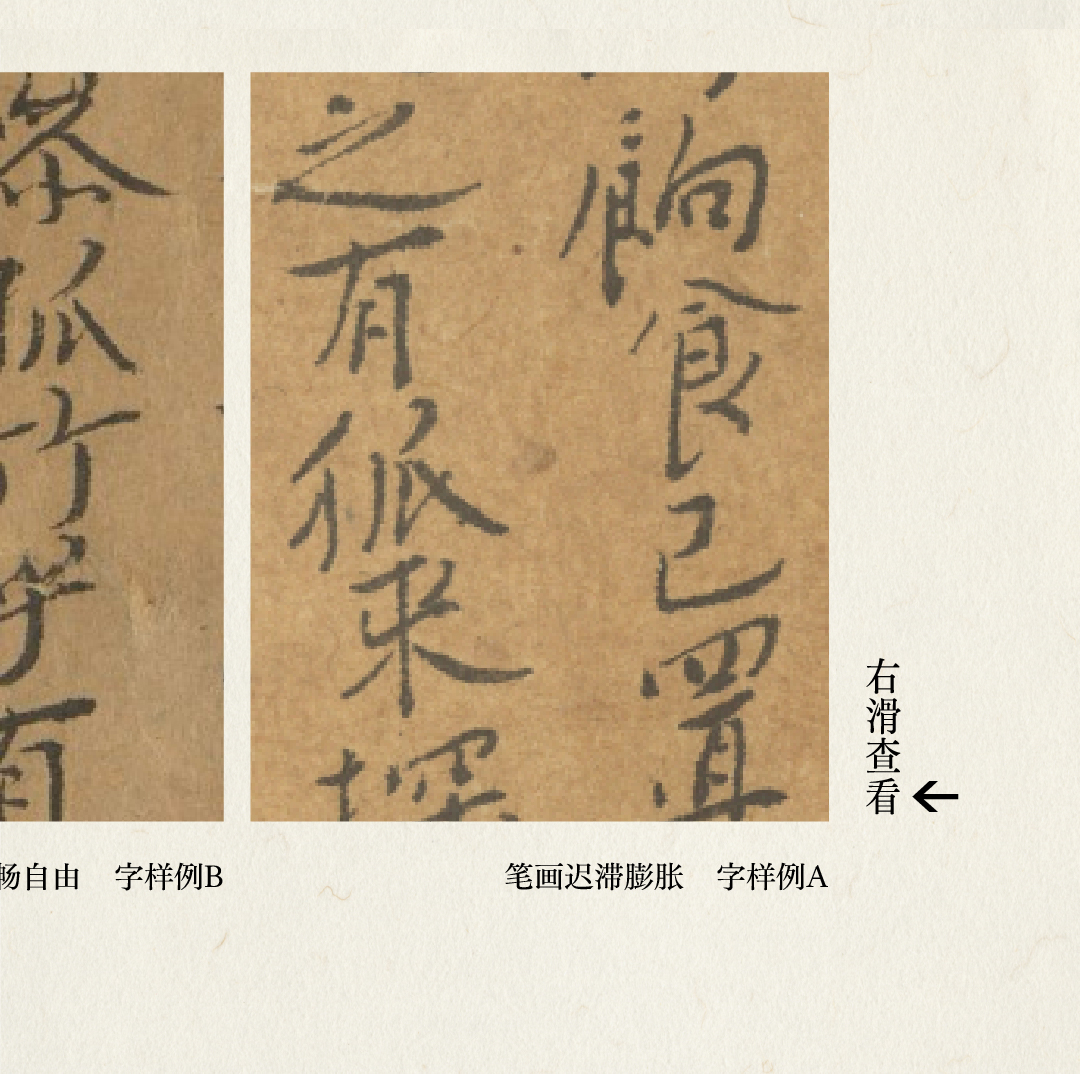 餉食已置
之有狐來
孤竹
乎
有
右滑查看
笔画迟滞膨胀　字样例A
畅自由　字样例B